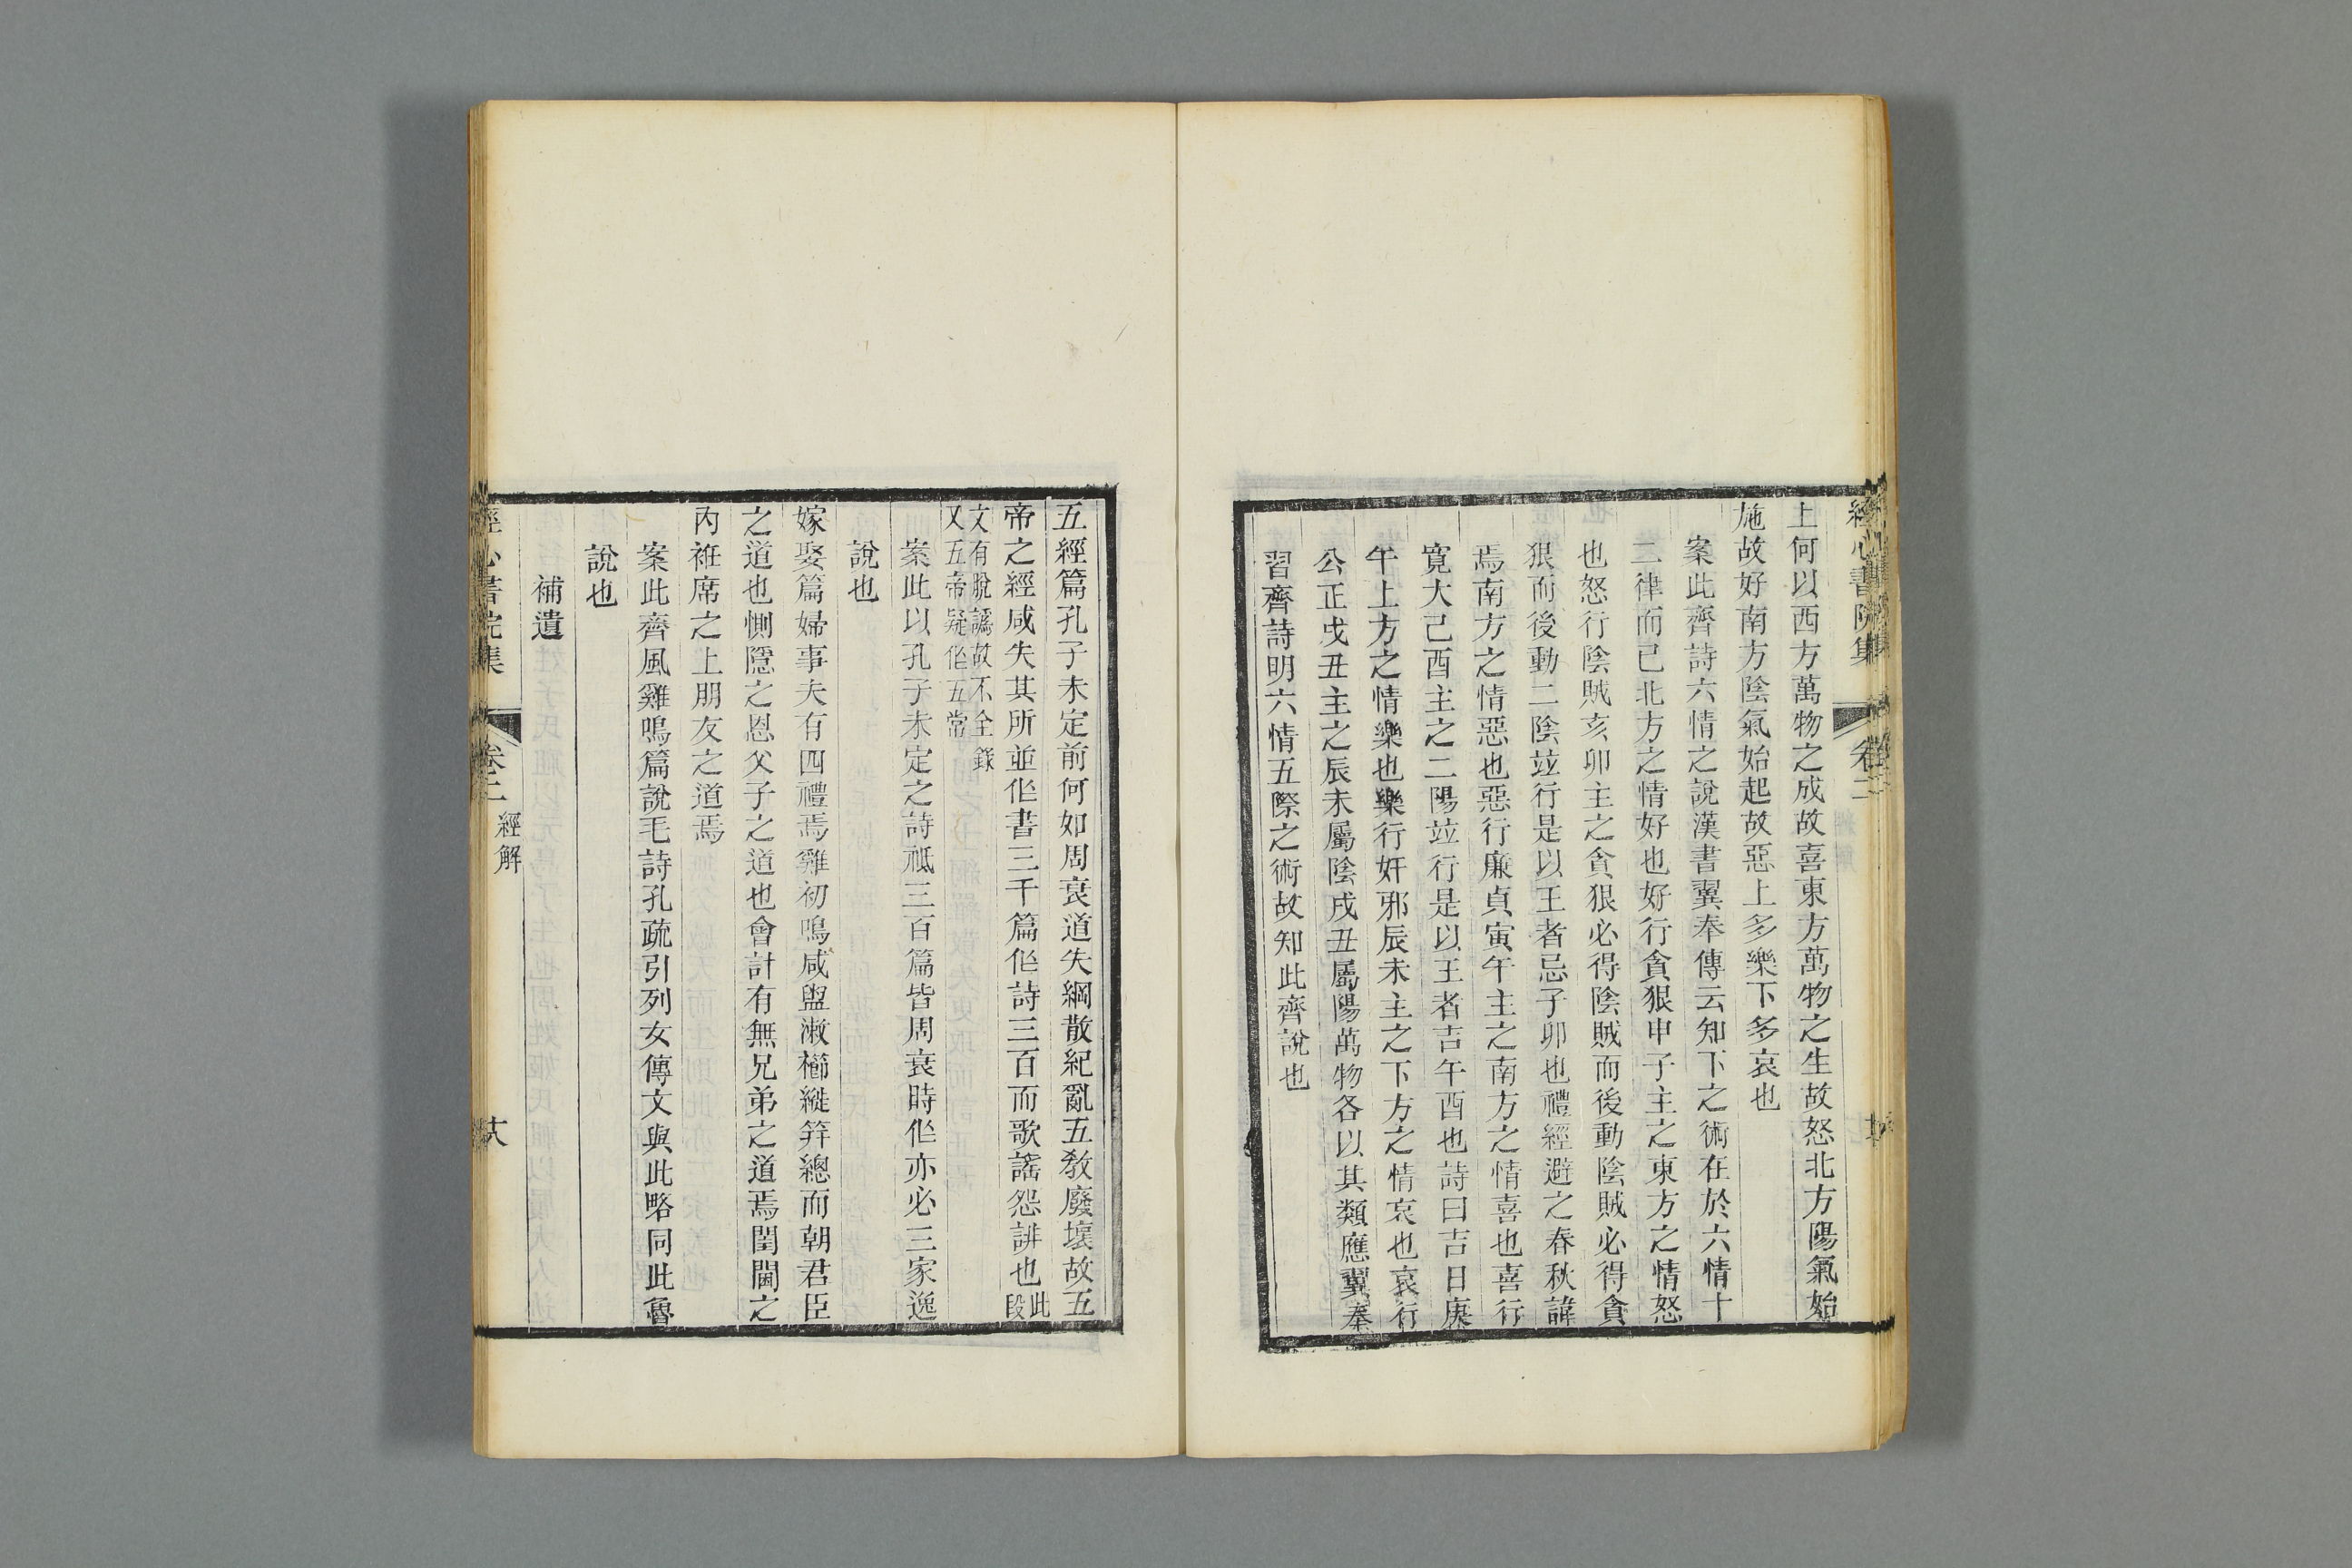 經心書院集
卷二
上何以西方萬物之成故喜東方萬物之生故怒北方陽氣始
施故好南方陰氣始起故惡上多樂下多哀也
案此齊詩六情之說漢書翼奉傳云知下之術在於六情十
二律而已北方之情好也好行貪狠申子主之東方之情怒
也怒行陰賊亥卯主之貪狠必得陰賊而後動陰賊必得貪
狠而後動二陰竝行是以王者忌子卯也禮經避之春秋諱
焉南方之情惡也惡行廉貞寅午主之南方之情喜也喜行
寬大己酉主之二陽竝行是以王者吉午酉也詩曰吉日庚
午上方之情樂也樂行奸邪辰未主之下方之情哀也哀行
公正戌丑主之辰未屬陰戌丑屬陽萬物各以其類應翼奉
習齊詩明六情五際之術故知此齊說也
五經篇孔子未定前何如周衰道失綱散紀亂五敎廢壞故五
帝之經咸失其所並作書三千篇作詩三百而歌謠怨誹也此段
文有脫譌故不全錄
又五帝疑作五常
案此以孔子未定之詩祗三百篇皆周衰時作亦必三家逸
說也
嫁娶篇婦事夫有四禮焉雞初鳴咸盥漱櫛縰笄總而朝君臣
之道也惻隱之恩父子之道也會計有無兄弟之道焉閨閫之
內袵席之上朋友之道焉
案此齊風雞鳴篇說毛詩孔疏引列女傳文與此略同此魯
說也
補遺
經心書院集
卷二
經解
十八